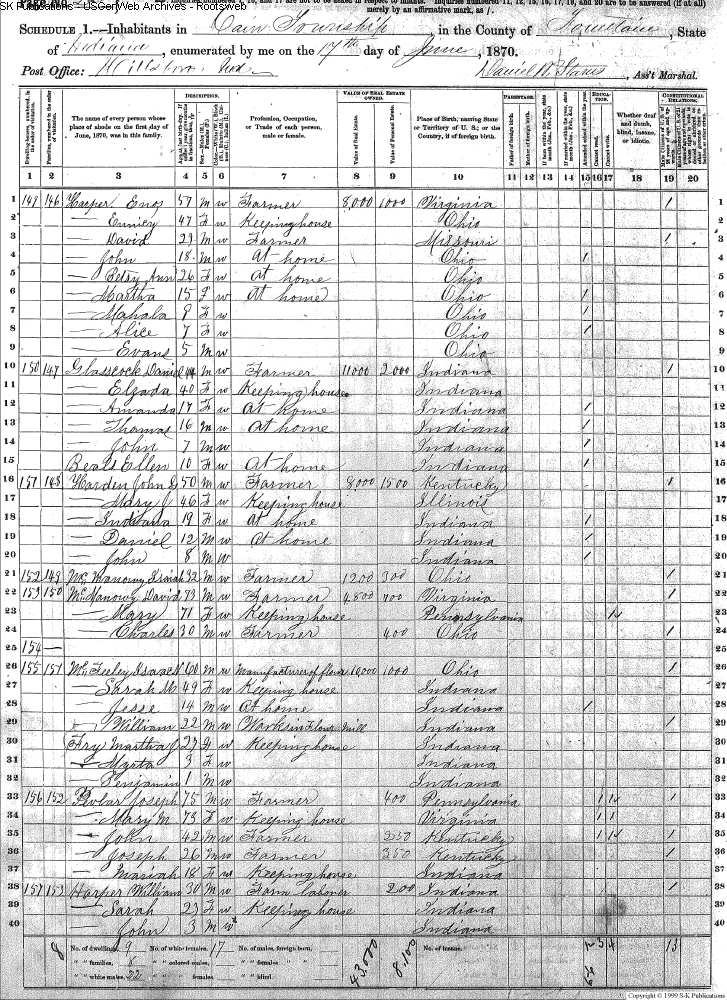 SK Publications - USGenWeb Archives - Rootsweb
merely by an affirmative mark, as /.
SCHEDULE 1.—Inhabitants in Cain Township, in the County of Fountain, State
of Indiana, enumerated by me on the 17th day of June, 1870.
Post Office: Hillsboro Ind Ass't Marshal.
DESCRIPTION. VALUE OF REAL ESTATE OWNED. PARENTAGE. EDUCATION. CONSTITUTIONAL RELATIONS.
Dwelling-houses, numbered in the order of visitation. Families, numbered in the order of visitation. The name of every person whose place of abode on the first day of June, 1870, was in this family. Profession, Occupation, or Trade of each person, male or female. Value of Real Estate. Value of Personal Estate. Place of Birth, naming State or Territory of U. S.; or the Country, if of foreign birth. Father of foreign birth. Mother of foreign birth. Attended school within the year. Cannot read. Cannot write. Whether deaf and dumb, blind, insane, or idiotic.
1 2 3 4 5 6 7 8 9 10 11 12 13 14 15 16 17 18 19 20
1 149 146 Harper Enos 57 M W Farmer 8,000 1000 Virginia / 1
2 — Emmey 47 F W Keeping house Ohio 2
3 — David 29 M W Farmer Missouri / 3
4 — John 18 M W At home Ohio / 4
5 — Betsy Ann 26 F W At home Ohio 5
6 — Martha 15 F W At home Ohio / 6
7 — Mahala 9 F W Ohio / 7
8 — Alice 7 F W Ohio / 8
9 — Evans 5 M W Ohio 9
10 150 147 Glasscock Daniel 44 M W Farmer 11000 2000 Indiana / 10
11 — Elzada 40 F W Keeping house Indiana 11
12 — Amanda 17 F W At home Indiana / 12
13 — Thomas 16 M W At home Indiana / 13
14 — John 7 M W Indiana / 14
15 Beals Ellen 10 F W At home Indiana / 15
16 151 148 Harden John D 50 M W Farmer 8,000 1500 Kentucky / 16
17 — Mary J 46 F W Keeping house Illinois 17
18 — Indiana 19 F W At home Indiana / 18
19 — Daniel 12 M W At home Indiana / 19
20 — John 8 M W Indiana / 20
21 152 149 McManowy Isaiah 32 M W Farmer 1200 300 Ohio / 21
22 153 150 McManowy David 73 M W Farmer 4800 700 Virginia / 22
23 — Mary 71 F W Keeping house Pennsylvania 23
24 — Charles 30 M W Farmer 400 Ohio / 24
25 154 — 25
26 155 151 McFeeley Isaac N 60 M W Manufacturer of flour 10,000 1000 Ohio / 26
27 — Sarah M 49 F W Keeping house Indiana 27
28 — Jesse 14 M W At home Indiana / 28
29 — William 22 M W Works in Flour Mill Indiana / 29
30 Fry Martha J 27 F W Keeping house Indiana 30
31 — Myrta 3 F W Indiana 31
32 — Benjamin 1 M W Indiana 32
33 156 152 Joseph 75 M W Farmer 400 Pennsylvania 33
34 — Mary M 73 F W Keeping house Virginia 34
35 — John 42 M W Farmer 350 Kentucky / 35
36 — Joseph 26 M W Farmer 350 Kentucky / 36
37 — Mariah 18 F W Keeping house Indiana 37
38 157 153 Harper William 30 M W Farm laborer 200 Indiana / 38
39 — Sarah 27 F W Keeping house Indiana 39
40 — John 3 M W Indiana 40
8 No. of dwellings, 9 No. of white females, 17 No. of males, foreign born, 43,000 8,100 No. of insane, 13
" " families, 8 " " colored males, " " females,
" " white males, 22 " " females, " " blind,
Copyright © 1999 S-K Publications